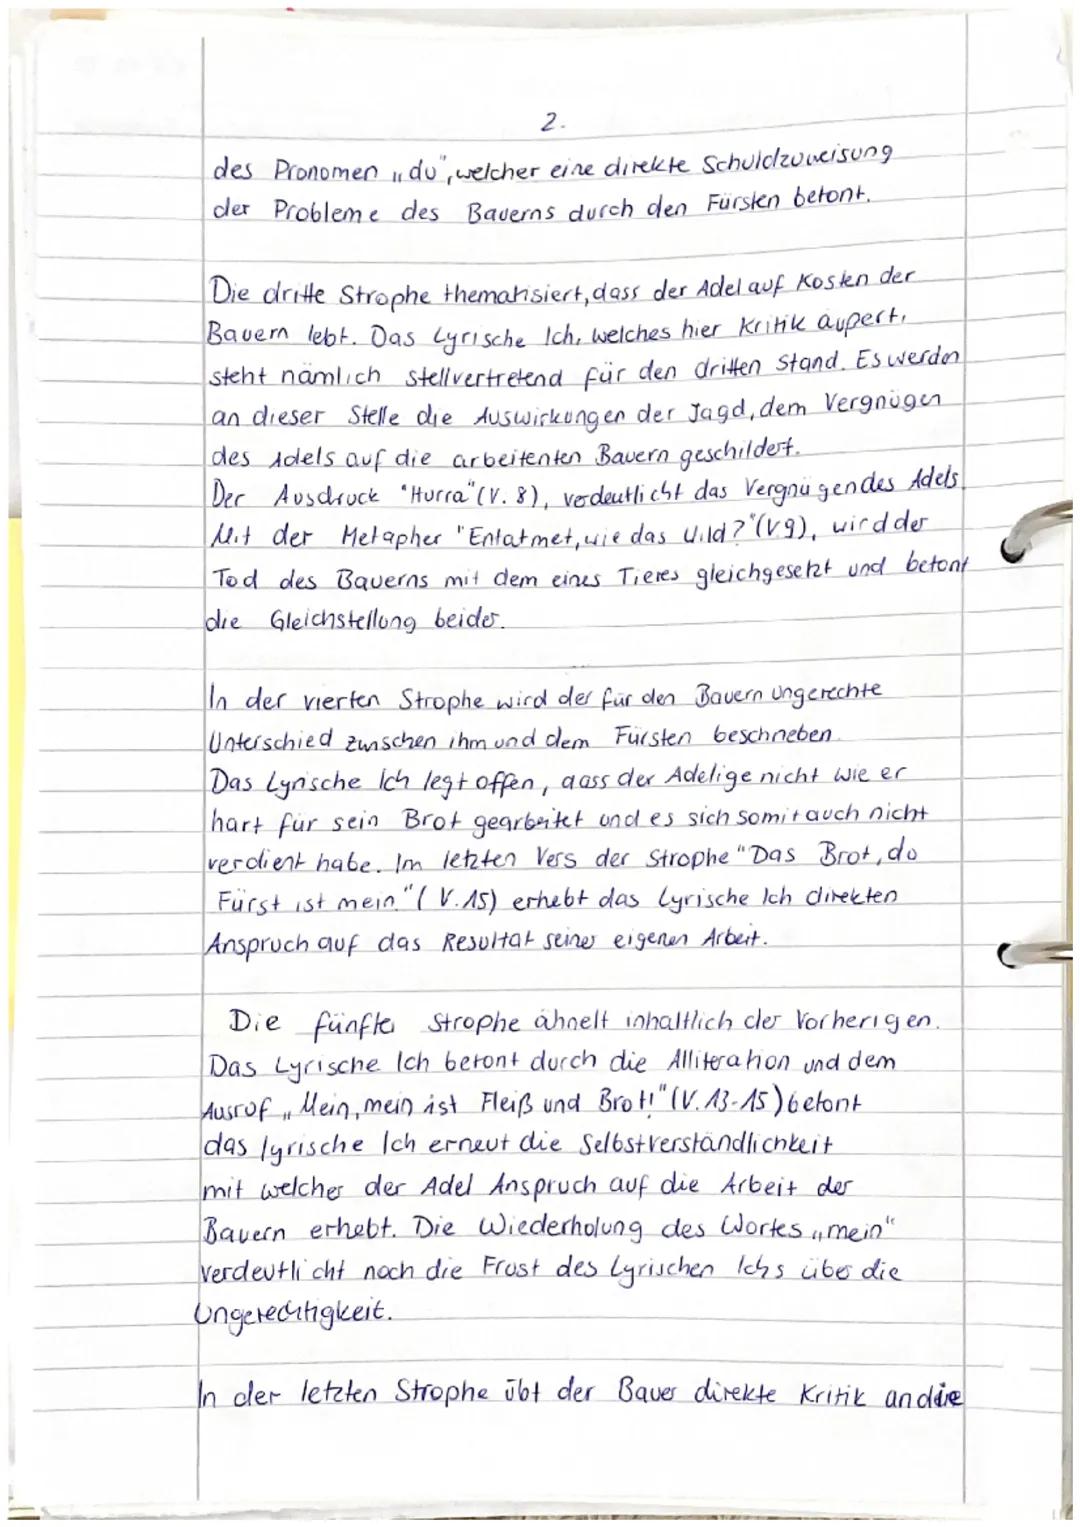 2.
des Pronomen „du", welcher eine direkte Schuldzuweisung
der Probleme des Bauerns durch den Fürsten betont.
Die dritte Strophe thematisiert, dass der Adel auf Kosten der
Bauern lebt. Das Lyrische Ich, welches hier Kritik äußert,
steht nämlich stellvertretend für den dritten Stand. Es werden
an dieser Stelle die Auswirkungen der Jagd, dem Vergnügen
des Adels auf die arbeitenten Bauern geschildert.
Der Ausdruck "Hurra" (V. 8), verdeutlicht das Vergnügen des Adels.
Mit der Metapher "Entatmet, wie das Wild?" (V.9), wird der
Tod des Bauerns mit dem eines Tieres gleichgesetzt und betont
die Gleichstellung beider.
In der vierten Strophe wird der für den Bauern ungerechte
Unterschied zwischen ihm und dem Fürsten beschrieben.
Das Lyrische Ich legt offen, dass der Adelige nicht wie er
hart für sein Brot gearbeitet und es sich somit auch nicht
verdient habe. Im letzten Vers der Strophe "Das Brot, du
Fürst ist mein." (V.15) erhebt das Lyrische Ich direkten
Anspruch auf das Resultat seiner eigenen Arbeit.
Die fünfte Strophe ähnelt inhaltlich der Vorherigen.
Das Lyrische Ich betont durch die Alliteration und dem
Ausruf „Mein, mein ist Fleiß und Brot!" (V. 13-15) betont
das lyrische Ich erneut die Selbstverständlichkeit
mit welcher der Adel Anspruch auf die Arbeit der
Bauern erhebt. Die Wiederholung des Wortes „mein"
verdeutlicht noch die Frust des Lyrischen Ichs über die
Ungerechtigkeit.
In der letzten Strophe übt der Bauer direkte Kritik an die